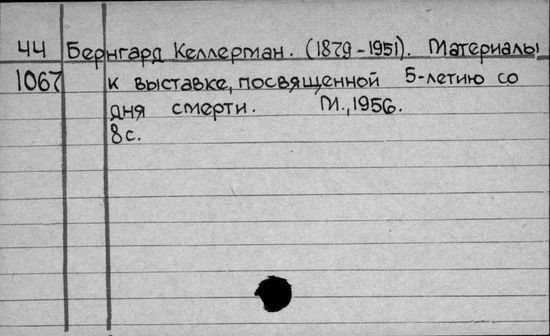 44 Бернгард Келлерман. (1879-1951). Материалы
1067 к выставке, посвященной 5-летию со
дня смерти. М., 1956.
8с.